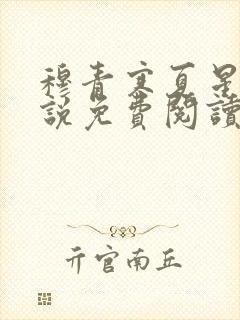 穆青寒夏星
說免費閱讀
亓官南丘